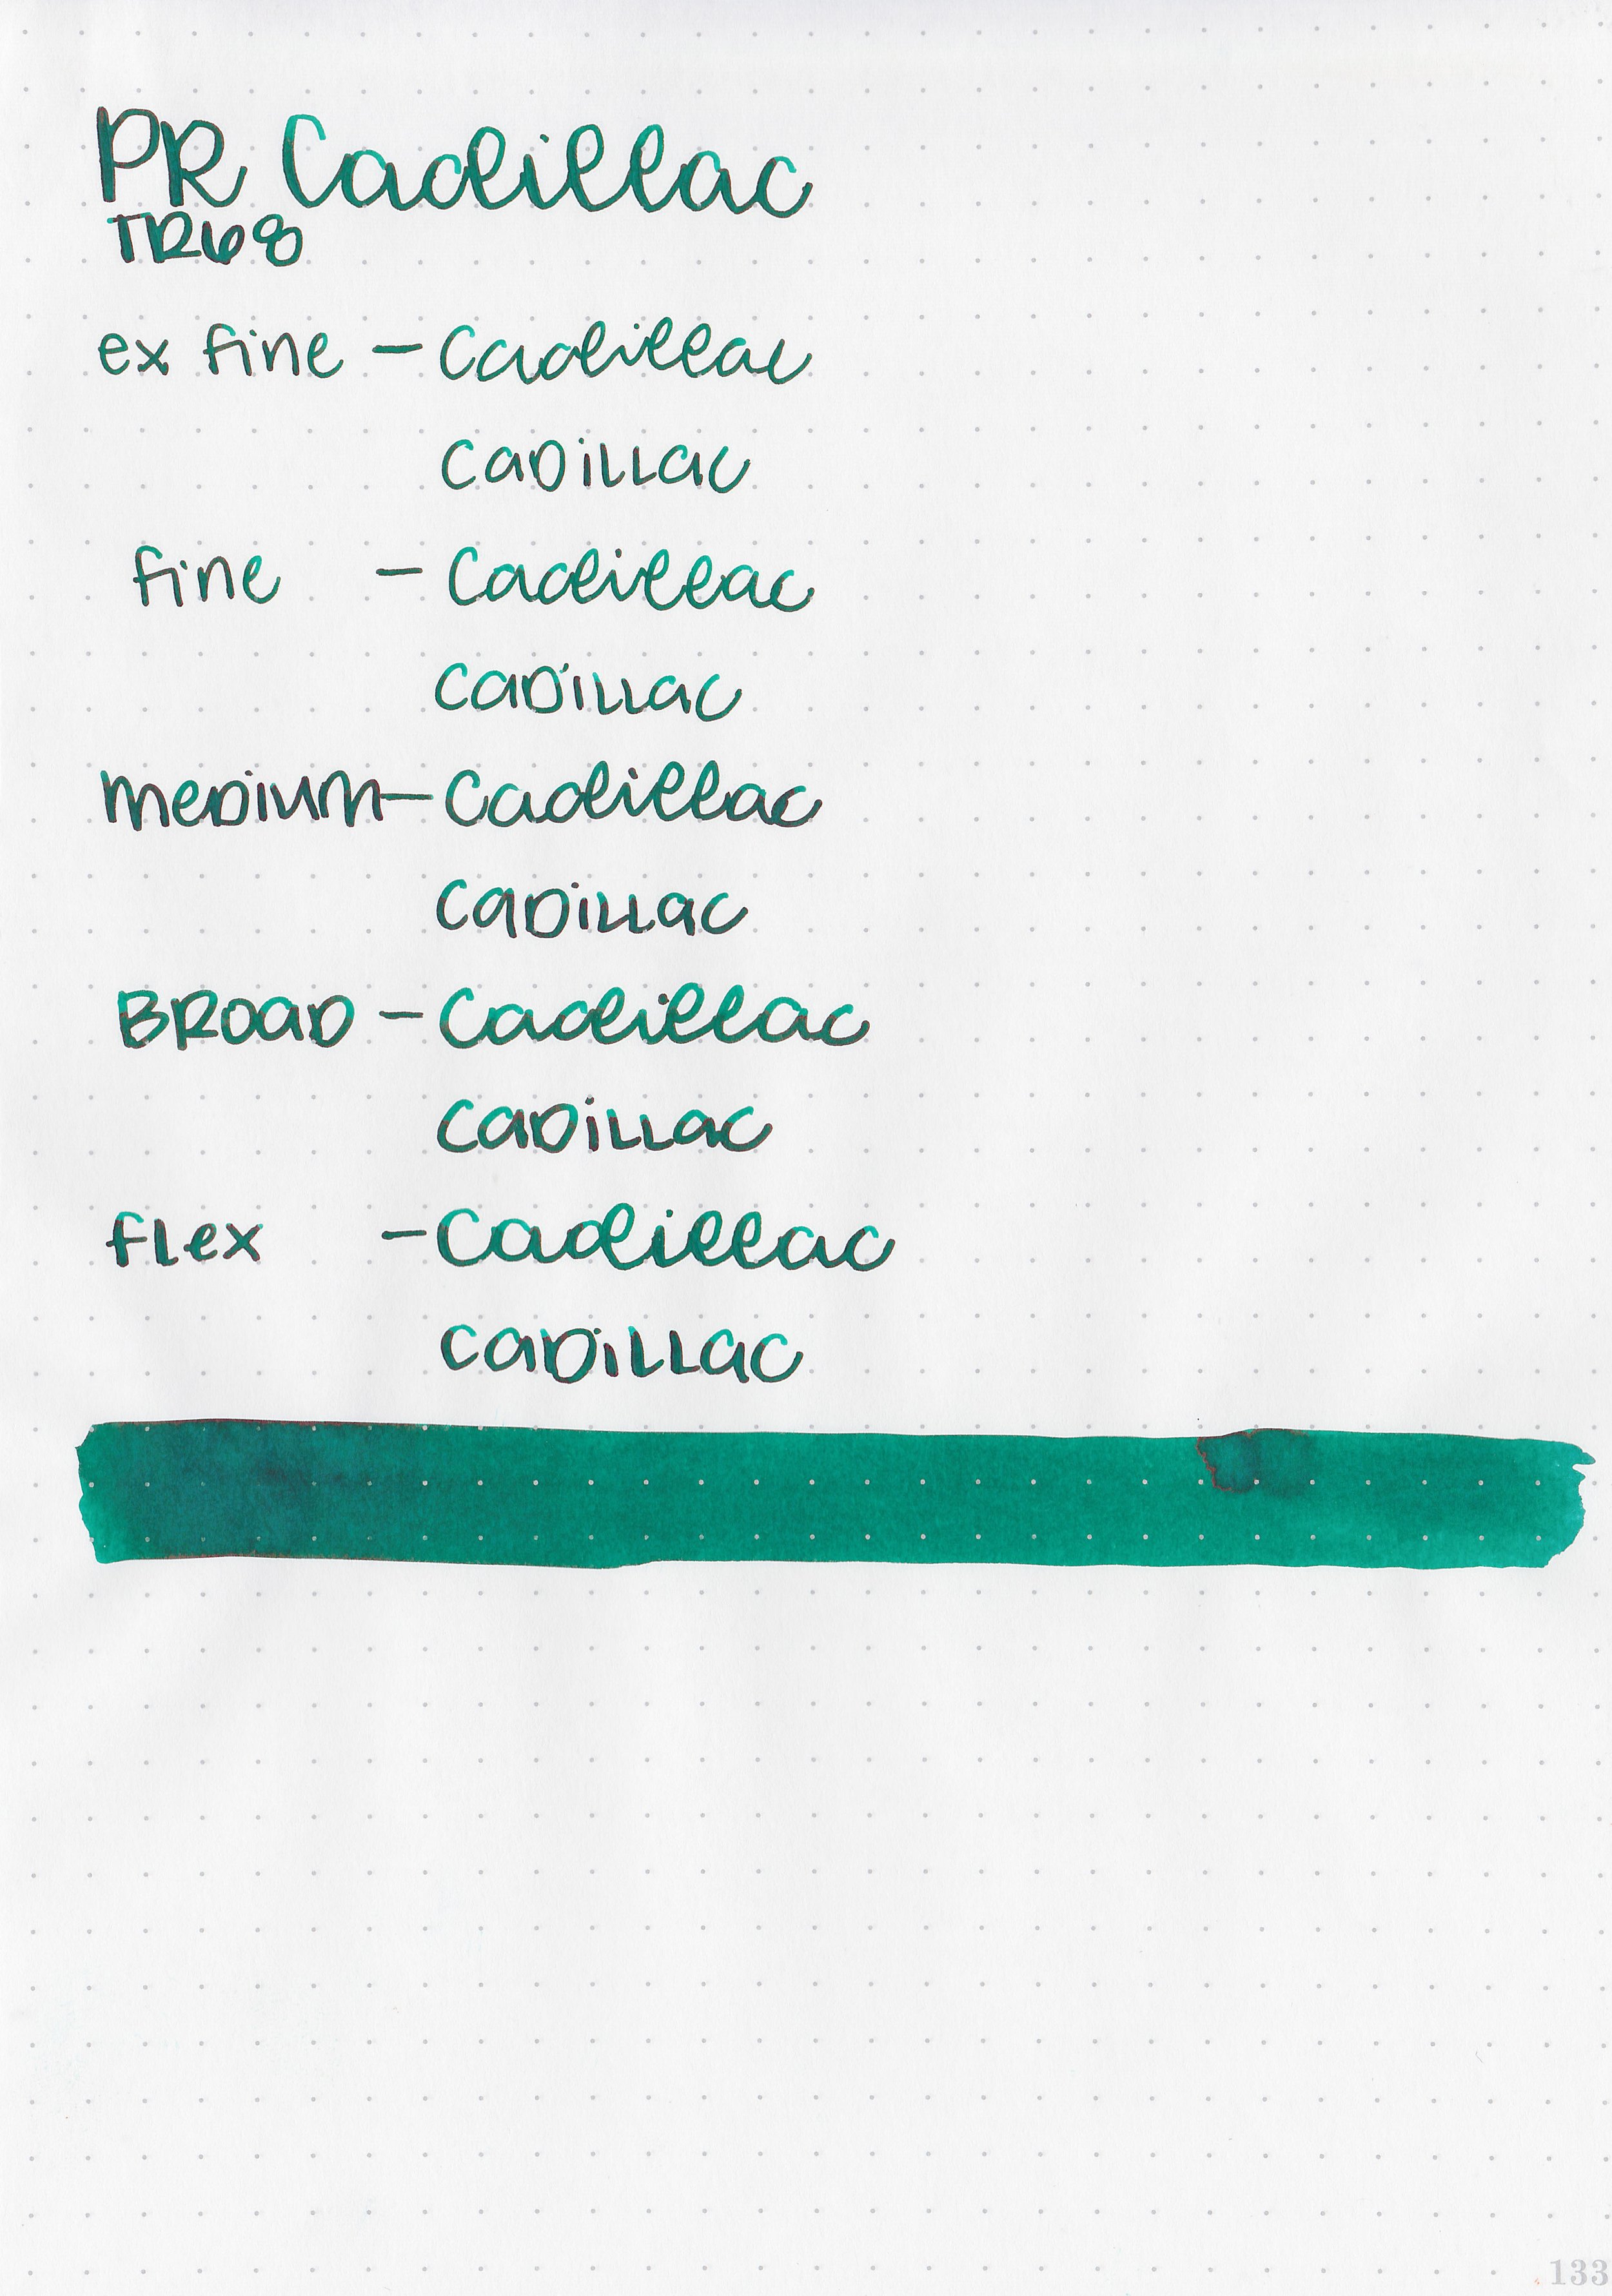 PR Cadillac
TR68
ex fine - Cadillac
Cadillac
fine - Cadillac
Cadillac
medium - Cadillac
Cadillac
BROAD - Cadillac
Cadillac
flex - Cadillac
Cadillac
133